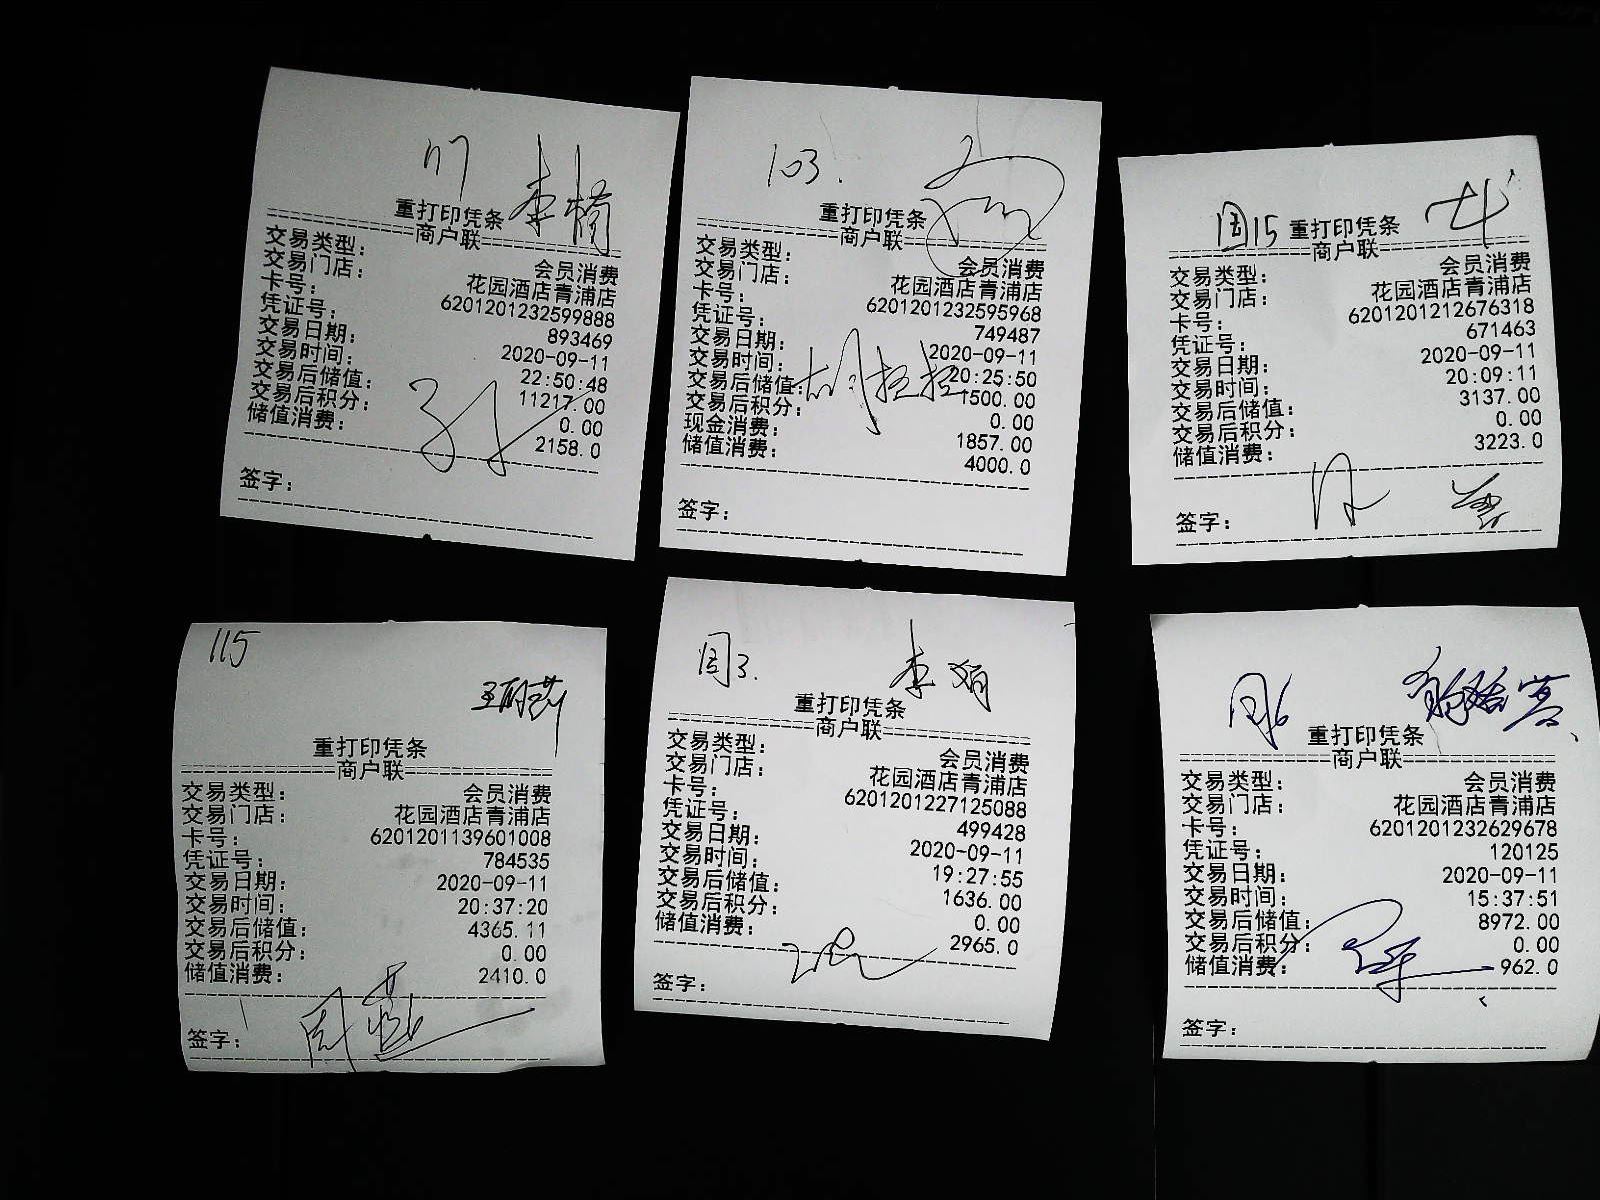 117 李楠
重打印凭条
商户联
交易类型： 会员消费
交易门店： 花园酒店青浦店
卡号： 6201201232599888
凭证号： 893469
交易日期： 2020-09-11
交易时间： 22:50:48
交易后储值： 11217.00
交易后积分： 0.00
储值消费： 2158.0
签字：
103.
重打印凭条
商户联
交易类型： 会员消费
交易门店： 花园酒店青浦店
卡号： 6201201232595968
凭证号： 749487
交易日期： 2020-09-11
交易时间： 20:25:50
交易后储值： 1500.00
交易后积分： 0.00
现金消费： 1857.00
储值消费： 4000.0
签字：
周15
重打印凭条
商户联
交易类型： 会员消费
交易门店： 花园酒店青浦店
卡号： 6201201212676318
凭证号： 671463
交易日期： 2020-09-11
交易时间： 20:09:11
交易后储值： 3137.00
交易后积分： 0.00
储值消费： 3223.0
签字：
115
王丽莉
重打印凭条
商户联
交易类型： 会员消费
交易门店： 花园酒店青浦店
卡号： 6201201139601008
凭证号： 784535
交易日期： 2020-09-11
交易时间： 20:37:20
交易后储值： 4365.11
交易后积分： 0.00
储值消费： 2410.0
签字：
周3. 李娟
重打印凭条
商户联
交易类型： 会员消费
交易门店： 花园酒店青浦店
卡号： 6201201227125088
凭证号： 499428
交易日期： 2020-09-11
交易时间： 19:27:55
交易后储值： 1636.00
交易后积分： 0.00
储值消费： 2965.0
签字：
周6
重打印凭条
商户联
交易类型： 会员消费
交易门店： 花园酒店青浦店
卡号： 6201201232629678
凭证号： 120125
交易日期： 2020-09-11
交易时间： 15:37:51
交易后储值： 8972.00
交易后积分： 0.00
储值消费： 962.0
签字：